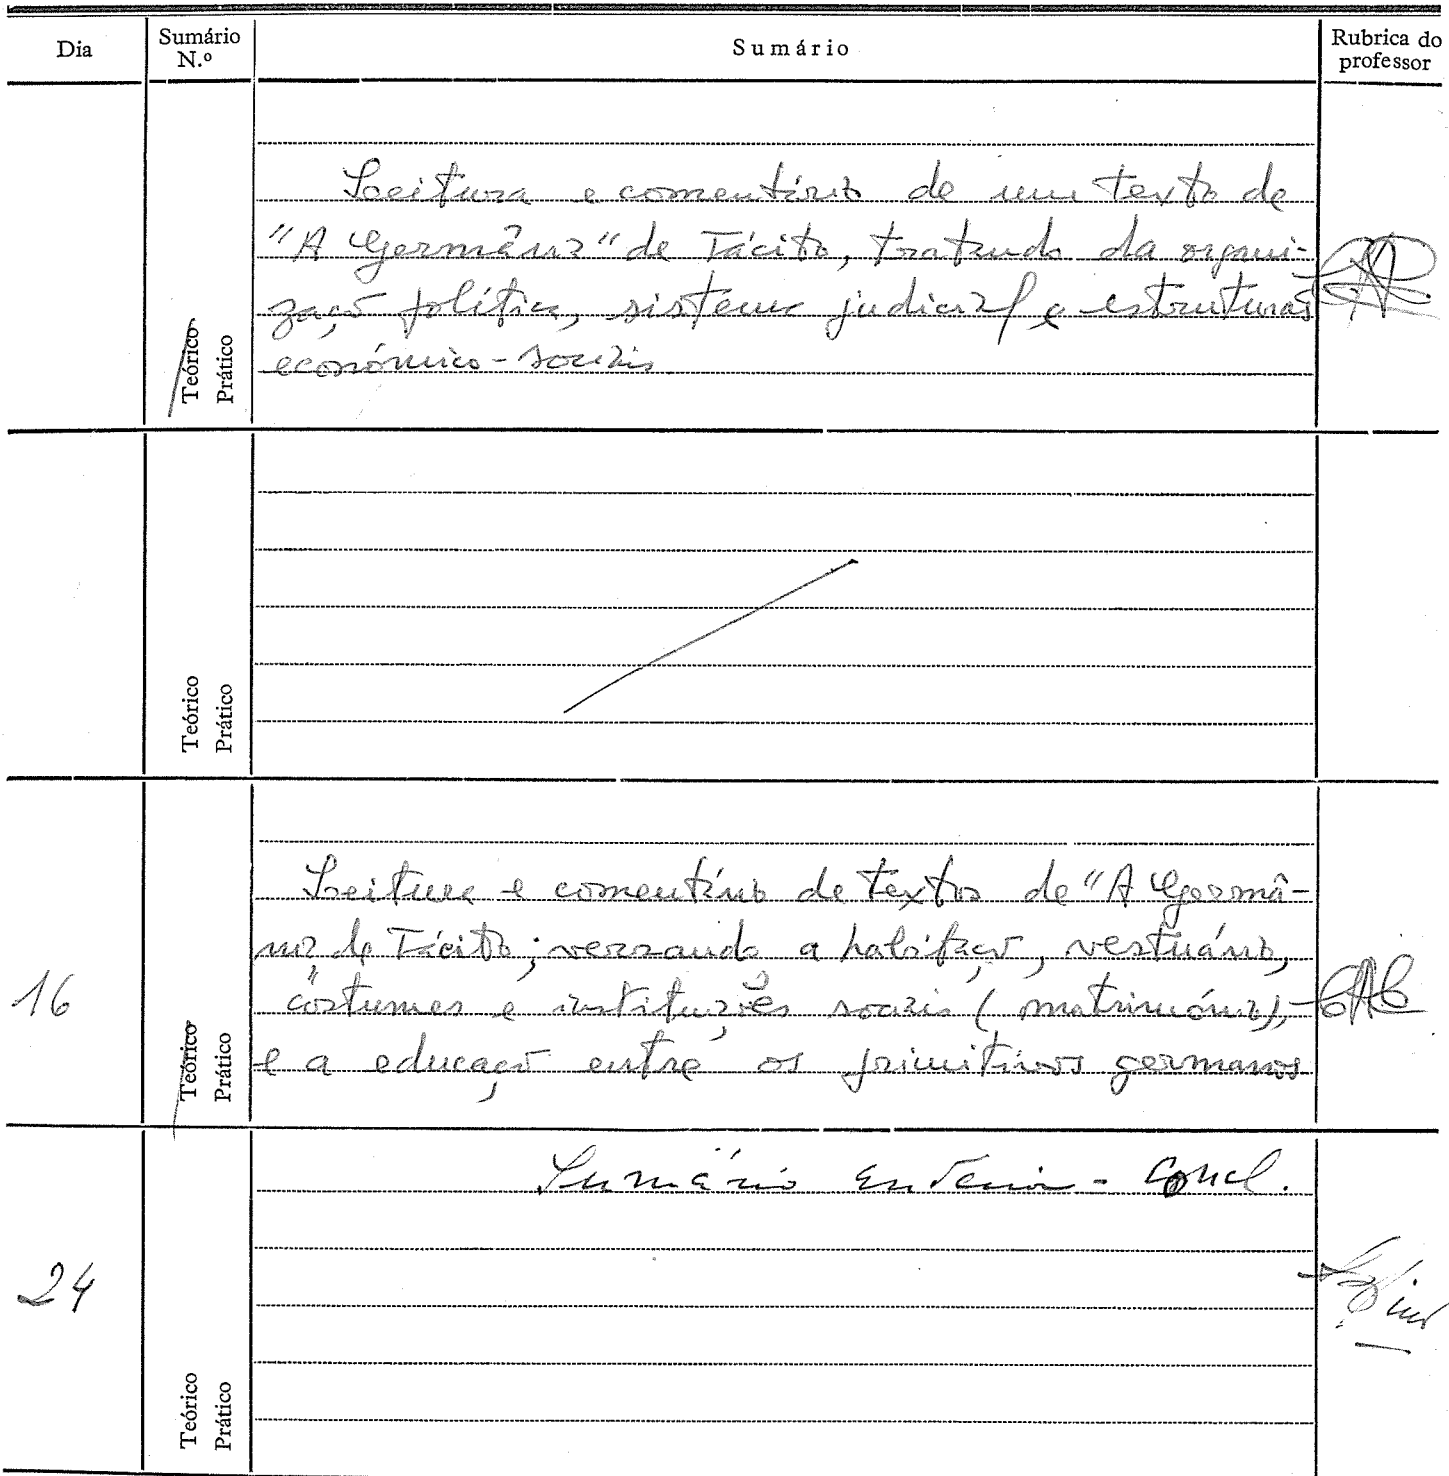 Dia
Sumário N.º
Sumário
Rubrica do professor
Leitura e comentário de um texto de
"A Germânia" de Tácito, tratando da organi-
zação política, sistema judicial e estruturas
económico-sociais.
Teórico
Prático
Teórico
Prático
16
Leitura e comentário de textos de "A Germâ-
nia" de Tácito; versando a habitação, vestuário,
costumes e instituições sociais (matrimónio),
e a educação entre os primitivos germanos
Teórico
Prático
24
Sumário anterior - Concl.
Teórico
Prático